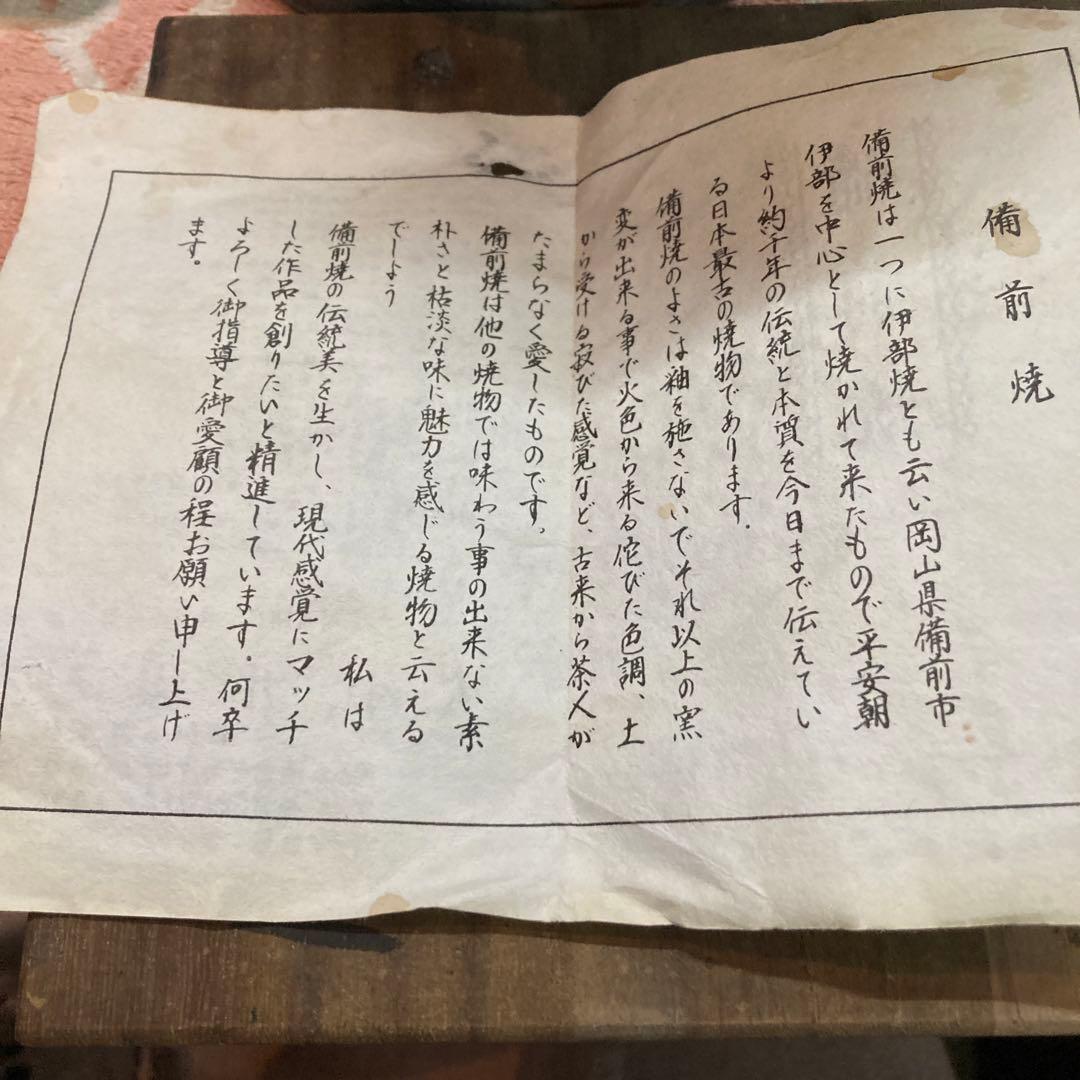 備前焼
備前焼は一つに伊部焼とも云い岡山県備前市
伊部を中心として焼かれて来たもので平安朝
より約千年の伝統と本質を今日まで伝えてい
る日本最古の焼物であります。
備前焼のよさは釉を施さないでそれ以上の窯
変が出来る事で火色から来る侘びた色調、土
から受ける寂びた感覚など、古来から茶人が
たまらなく愛したものです。
備前焼は他の焼物では味わう事の出来ない素
朴さと枯淡な味に魅力を感じる焼物と云える
でしよう
私は
備前焼の伝統美を生かし、現代感覚にマッチ
した作品を創りたいと精進しています。何卒
よろしく御指導と御愛顧の程お願い申し上げ
ます。